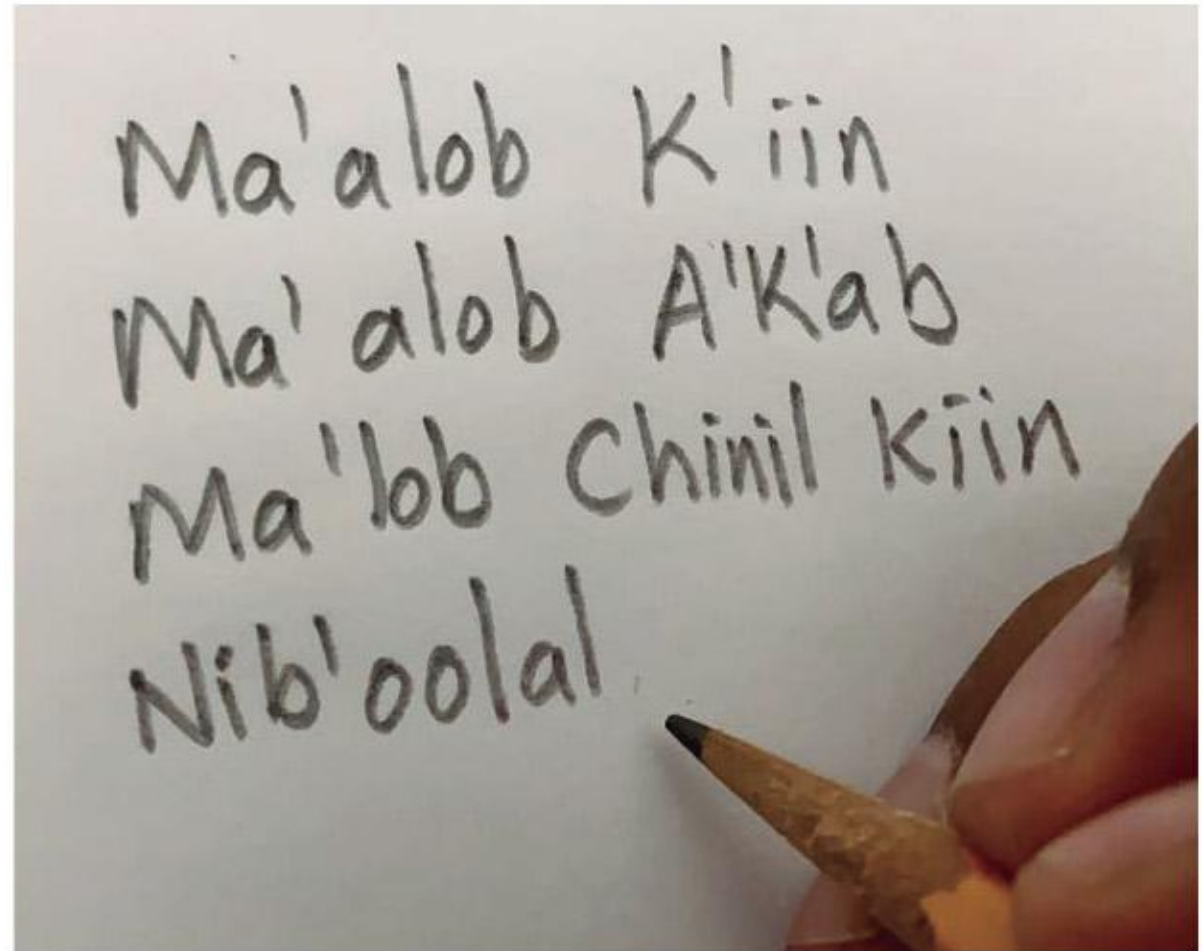 Ma'alob K'iin
Ma'alob A'K'ab
Ma'lob Chinil Kiin
Nib'oolal